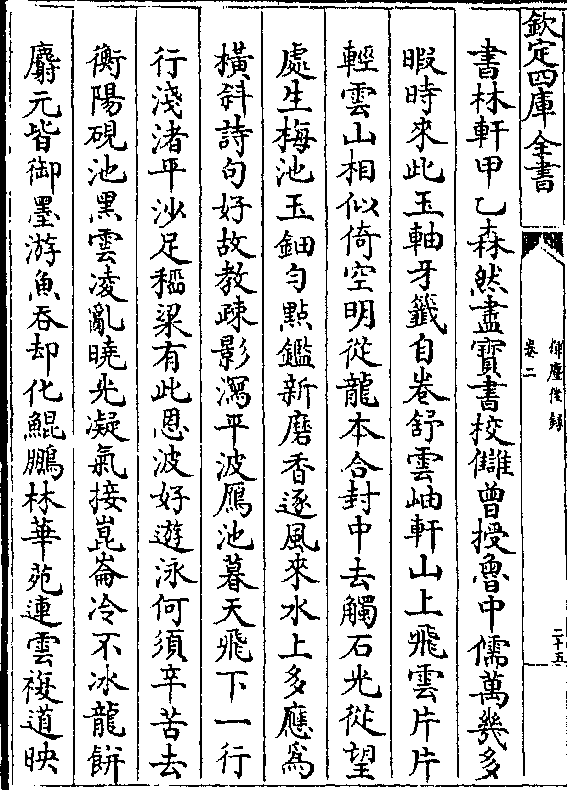 欽定四庫全書
揮麈後録
卷二
二十五
書林軒甲乙森然盡寳書挍讎曽授魯中儒萬幾多
暇時來此玉軸牙籤自卷舒雲岫軒山上飛雲片片
輕雲山相似倚空明從龍本合封中去觸石光從望
處生梅池玉鈿勻㸃鑑新磨香逐風來水上多應爲
橫斜詩句好故教疎影瀉平波鴈池暮天飛下一行
行淺渚平沙足稻粱有此恩波好遊泳何須辛苦去
衡陽硯池黒雲凌亂曉光凝氣接崑崙冷不冰龍餅
麝元皆御墨游魚吞却化鯤鵬林華苑連雲複道映